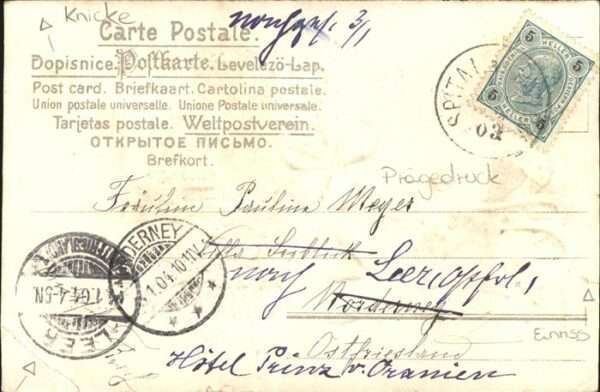 Knicke
Carte Postale.
Dopisnice. Postkarte. Levelező-Lap.
Post card. Briefkaart. Cartolina postale.
Union postale universelle. Unione Postale universale.
Tarjetas postale. Weltpostverein.
ОТКРЫТОЕ ПИСЬМО.
Brefkort.
5 HELLER 5
SPITAL
03
Prägedruck
Fräulein Pauline Meyer
Villa Seeblick
NORDERNEY
1.04.10-11V.
nach Leer,
Norderney
Ostfriesland
Hôtel Prinz v. Oranien
LEER
1.04.4-5N.
Einriss